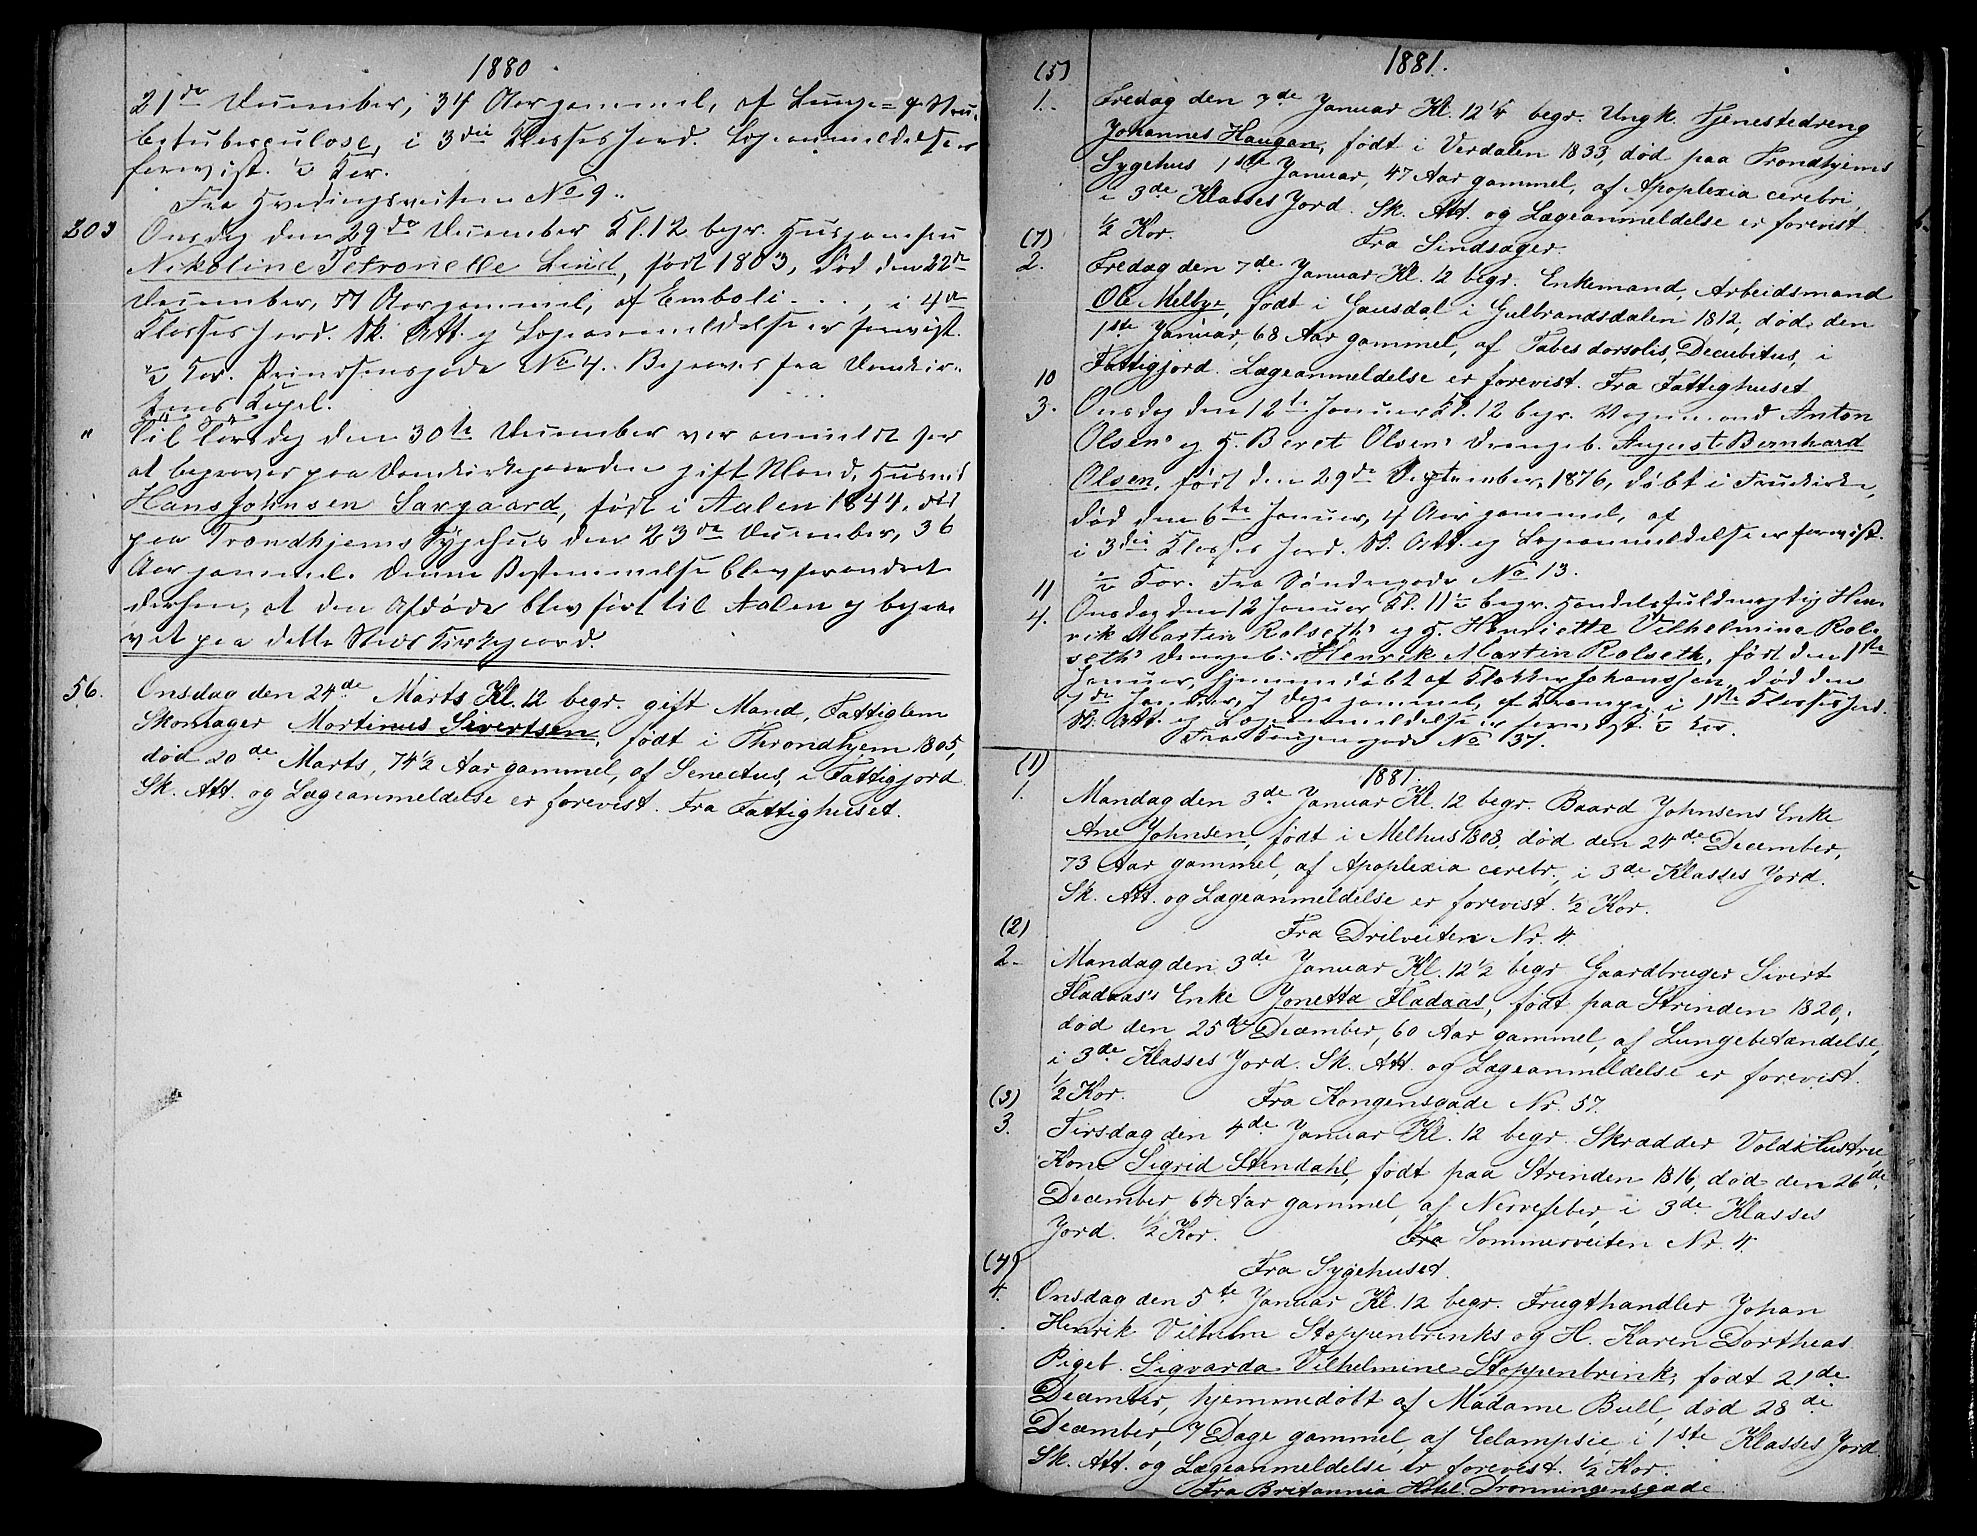 1880
21de December, 34 Aar gammel, af Lunge- & Stru-
betuberculose, i 3die Klasses Jord. Lægeanmeldelse er
forevist. ½ Kor.
Fra Hvedingsveiten No 9.
203 Onsdag den 29de December Kl. 12 begr. Huusjomfru
Nikoline Petronelle Lind, født 1803, død den 22de
December, 77 Aar gammel, af Emboli . . . , i 4de
Klasses Jord. Sk. Att. og Lægeanmeldelse er forevist.
½ Kor. Prindsensgade No 4. Begraves fra Domkir-
kens Kapel.
" Til Torsdag den 30te December var anmeldt for
at begraves paa Domkirkegaarden gift Mand, Husmd
Hans Johnsen Sargaard, født i Aalen 1844, død
paa Trondhjems Sygehus den 23de December, 36
Aar gammel. Denne Bestemmelse blev forandret
derhen, at den Afdøde blev ført til Aalen og begra-
vet paa dette Steds Kirkegaard.
56. Onsdag den 24de Marts Kl. 12 begr. gift Mand, Fattiglem
Skomager Martinus Sivertsen, født i Throndhjem 1805,
død 20de Marts, 74½ Aar gammel, af Senectus, i Fattigjord
Sk. Att. og Lægeanmeldelse er forevist. Fra Fattighuset.
1881.
(5)
1. Fredag den 7de Januar Kl. 12¼ begr. Ungk. Tjenestedreng
Johannes Haugan, født i Verdalen 1833, død paa Trondhjems
Sygehus 1ste Januar, 47 Aar gammel, af Apoplexia cerebri,
i 3de Klasses Jord. Sk. Att. og Lægeanmeldelse er forevist.
½ Kor. Fra Sindsager.
(7)
2. Fredag den 7de Januar Kl. 12 begr. Enkemand, Arbeidsmand
Ole Melbye, født i Gausdal i Gulbrandsdalen 1812, død den
1ste Januar, 68 Aar gammel, af Tabes dorsolis, Decubitus, i
Fattigjord. Lægeanmeldelse er forevist. Fra Fattighuset
10
3. Onsdag den 12te Januar Kl. 12 begr. Vognmand Anton
Olsens og H. Beret Olsens Drengeb. August Bernhard
Olsen, født den 29de September 1876, døbt i Fruekirke,
død den 6te Januar, 4 Aar gammel, af
i 3die Klasses Jord. Sk. Att. og Lægeanmeldelse er forevist.
½ Kor. Fra Søndregade No 13.
11
4. Onsdag den 12 Januar Kl. 11½ begr. Handelsfuldmægtig Hen-
rik Martin Rolseths og H. Henriette Vilhelmine Rol-
seths Drengeb. Henrik Martin Rolseth, født den 1ste
Januar, hjemmedøbt af Klokker Johanssen, død den
7de Januar, 7 Dage gammel, af Krampe, i 1ste Klasses Jord.
Sk. Att. og Lægeanmeldelse er forevist. ½ Kor.
Fra Kongensgade No 37.
1881.
(1)
1. Mandag den 3de Januar Kl. 12 begr. Baard Johnsens Enke
Ane Johnsen, født i Melhus 1808, død den 24de December,
73 Aar gammel, af Apoplexia cerebr., i 3de Klasses Jord.
Sk. Att. og Lægeanmeldelse er forevist. ½ Kor.
Fra Drilveiten Nr. 4.
(2)
2. Mandag den 3de Januar Kl. 12½ begr Gaardbruger Sivert
Fladaas's Enke Jonetta Fladaas, født paa Strinden 1820,
død den 25de December, 60 Aar gammel, af Lungebetændelse,
i 3de Klasses Jord. Sk. Att. og Lægeanmeldelse er forevist.
½ Kor. Fra Kongensgade Nr. 57.
(3)
3. Tirsdag den 4de Januar Kl. 12 begr. Skrædder Volds Hustru
Kone Sigrid Stendahl, født paa Strinden 1816, død den 26de
December, 64 Aar gammel, af Nervefeber, i 3de Klasses
Jord. ½ Kor. Fra Sommerveiten Nr. 4.
Fra Sygehuset.
(4)
4. Onsdag den 5te Januar Kl. 12 begr. Frugthandler Johan
Henrik Vilhelm Stoppenbrinks og H. Karen Dortheas
Pigeb. Sigvarda Vilhelmine Stoppenbrink, født 21de
December, hjemmedøbt af Madame Bull, død 28de
December, 7 Dage gammel, af Eclampsie, i 1ste Klasses Jord
Sk. Att. og Lægeanmeldelse er forevist. ½ Kor.
Fra Britannia Hotel. Dronningensgade.